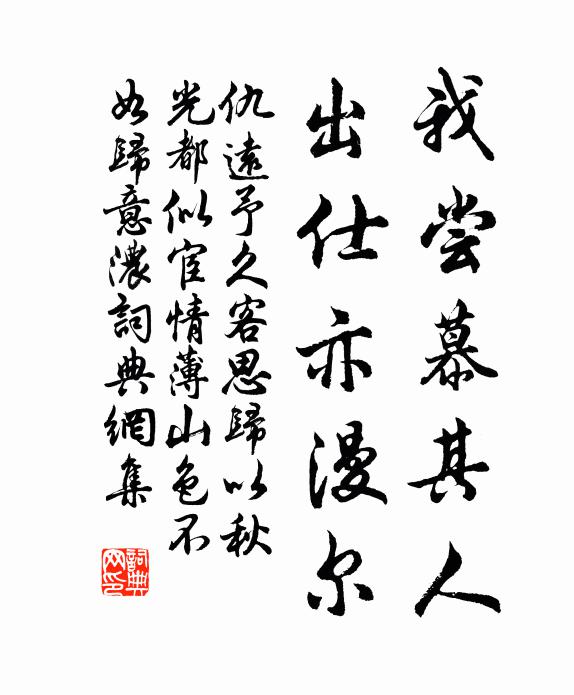 我尝慕其人
出仕亦漫尔
仇遠予久客思歸以秋
光都似宦情薄山色不
如歸意濃詞典網集
詞典
网印